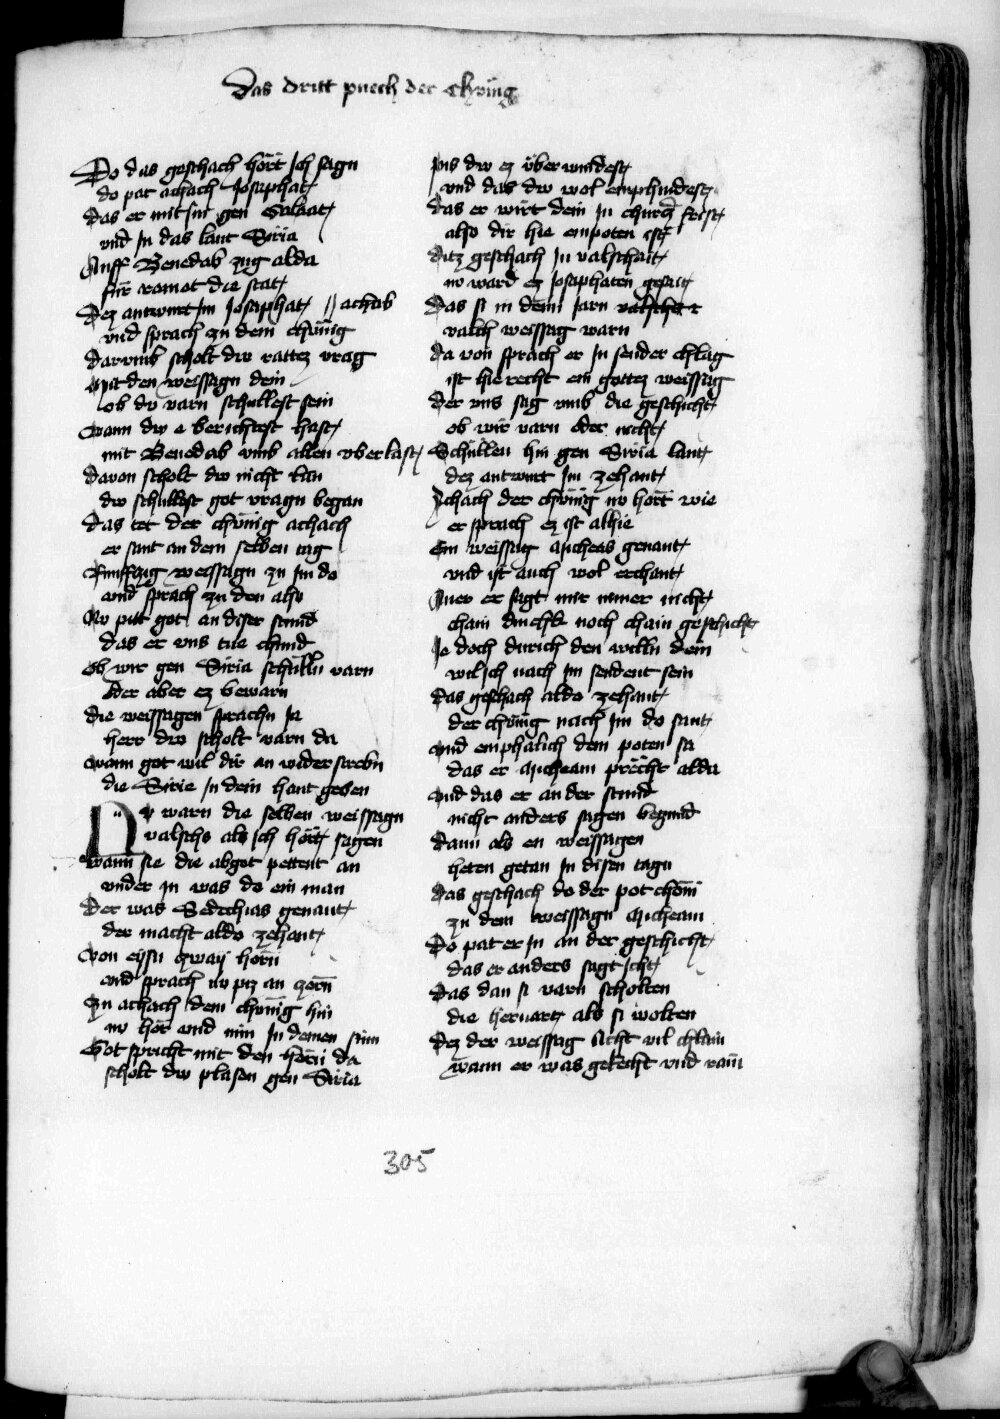 Das dritt puech der chünig
Do das geschach hört ich sagn
do pat achach Josaphat
das er mit im gen Galaat
vnd in das lant Siria
Auff Benedab zug alda
für ramot die stat
Dez antwurt im Josaphat // achab
vnd sprach zu dem chünig
Darvmb scholt dw rattez vrag
Mit den weissagn dein
ob du varn schullest sein
Wann dw e berichtest hast
mit Benedab vmb allen vberlast
Davon scholt dw nicht lan
dw schullest got vragn began
Das tet der chünig achach
er sant an dem selben tag
Fünffzig weissagn zu im do
vnd sprach zu den also
Nv pitt got an diser stund
das er vns tue chund
Ob wir gen Siria schülln varn
oder aber ez bewarn
Die weissagen sprachn ja
herr dw scholt varn da
Wann got wil dir an widerstrebn
die Sirie in dein hant geben
Nv warn die selben weissagn
valschs als ich hört sagen
Wann sie die abgot pettent an
vnder in was do ein man
Der was Sedechias genant
der macht aldo zehant
Von eysn zway horn
vnd sprach nv piz an zorn
Zu achach dem chünig hin
nv hör vnd nim in deinen sinn
Got spricht mit den hörn da
scholt dw plasen gen Siria
pis dw ez überwindest
vnd das dw wol emphindest
das er wirt dein in churczer frist
also dir hie enpoten ist
Ditz geschach in valschait
nv ward ez Josaphaten gesait
Das si in dem jarn valscher
valsch weissag warn
Da von sprach er in sender chlag
ist hie recht ein gottez weissag
Der vns sag vmb die geschicht
ob wir varn oder nicht
Schüllen hin gen Siria lant
dez antwurt im zehant
Achach der chünig nv hört wie
er sprach ez ist alhie
Ein weissag Micheas genant
vnd ist auch wol erchant
Auer er sagt mir nimer nicht
chain noch chain geschicht
Je doch durich den willn dein
wil ich nach im sendent sein
Das geschach aldo zehant
der chünig nach im do sant
Vnd emphalich dem poten sa
das er Micheam prächt alda
Vnd das er an der stund
nicht anders sagen begund
Dann als en weissagen
heten getan in disen tagn
Das geschach do der pot chom
zu dem weissagn Micheam
Do pat er in an der geschicht
das er anders sagt icht
Das dan si varn scholten
die heruart als si wolten
Dez der weissag acht vil chlain
wann er was gerecht vnd rain
305